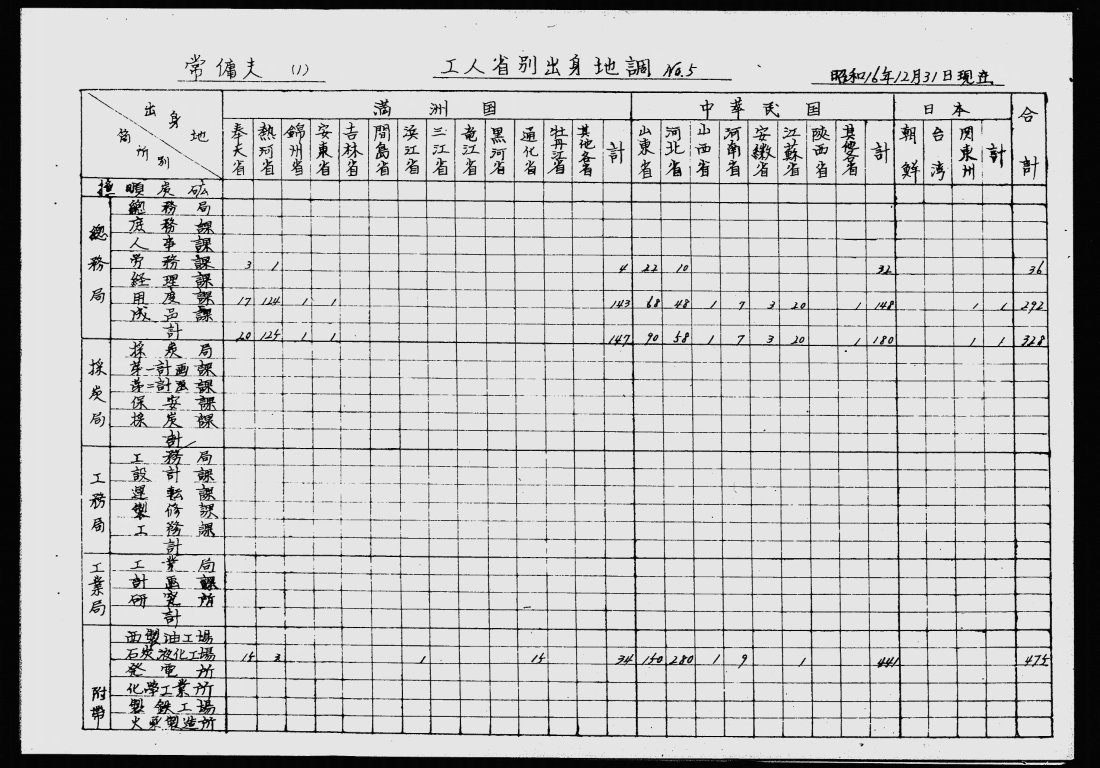 常傭夫 (1) 工人省別出身地調 No.5 昭和16年12月31日現在
出身地 箇所別 満洲国 中華民国 日本 合計
奉天省 熱河省 錦州省 安東省 吉林省 間島省 浜江省 三江省 竜江省 黒河省 通化省 牡丹江省 其他各省 計 山東省 河北省 山西省 河南省 安徽省 江蘇省 陝西省 其他各省 計 朝鮮 台湾 関東州 計
撫順炭砿
総務局
総務局
庶務課
人事課
労務課 3 1 4 22 10 32 36
経理課
用度課 17 124 1 1 143 68 48 1 7 3 20 1 148 1 1 292
成品課
計 20 125 1 1 147 90 58 1 7 3 20 1 180 1 1 328
採炭局
採炭局
第一計画課
第二計画課
保安課
採炭課
計
工務局
工務局
設計課
運転課
製修課
工務課
計
工業局
工業局
計画課
研究所
計
附帯
西製油工場
石炭液化工場 15 3 1 15 34 150 280 1 9 1 441 475
発電所
化学工業所
製鉄工場
火薬製造所